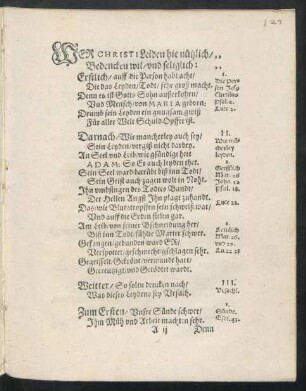 WER CHRISTI Leiden hie nützlich/
Bedencken wil/ vnd seliglich:
Erstlich/ auff die Person hab acht/
Die das Leyden/ Todt/ sehr groß macht/
Denn es ist Gotts Sohn außerkohren/
Vnd Mensch/ von MARIA geborn;
Drumb sein Leyden ein gnugsam gwist
Für aller Welt Schuld Opffer ist.
Darnach/ Wie mancherley auch sey/
Sein Leyden/ vergiß nicht darbey.
An Seel vnd Leib wie gsündiget hett
ADAM: So Er auch leyden thet.
Sein Seel ward betrübt biß inn Todt/
Sein Geist auch zagen wolt in Noht.
Ihn vmbfiengen des Todes Bandt/
Der Hellen Angst Ihn plagt zuhandt.
Das/ wie Blutstropffen sein schweiß/ wat/
Vnd auff die Erden fielen gar.
Am Leib/ von seiner Bschneidung her/
Biß inn Todt fühlte Marter schwer.
Gefangen/ gebunden ward ER/
Verspottet/ geschmecht/ geschlagen sehr.
Gegeisselt/ Gekrönt/ verwundt hart/
Gecreutzigt/ vnd Getödtet wardt.
Weitter/ So soltu dencken nach/
Was dieses Leydens sey Vrsach.
Zum Ersten/ Vnsre Sünde schwer/
Ihm Müh vnd Arbeit machten sehr.
A ij Denn
I.
Die Person
Jesu
Christus
Psal. 2.
Luc. 2.
II.
Wie mancherley
leyden.
1.
Geistlich
Mar. 26
Psal. 18.
Luce 22.
2.
Leiblich
Mat. 26.
vnd 27.
Luc 22 23
III.
Vrsach.
1.
Sünde.
Esai. 43.